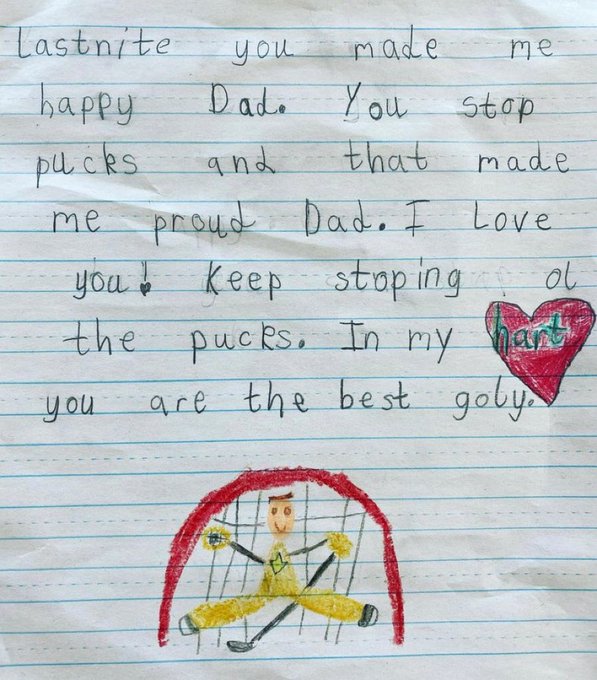 Lastnite you made me
happy Dad. You stop
pucks and that made
me proud Dad. I Love
you! Keep stoping ol
the pucks. In my hart
you are the best goly.